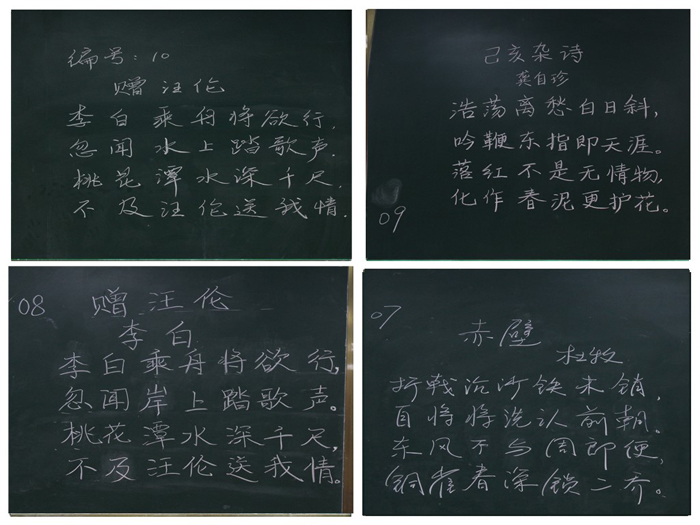 编号:10
赠汪伦
李白乘舟将欲行,
忽闻水上踏歌声.
桃花潭水深千尺,
不及汪伦送我情.
己亥杂诗
龚自珍
浩荡离愁白日斜,
吟鞭东指即天涯。
落红不是无情物,
化作春泥更护花。
09
08
赠汪伦
李白
李白乘舟将欲行,
忽闻岸上踏歌声。
桃花潭水深千尺,
不及汪伦送我情。
07
赤壁
杜牧
折戟沉沙铁未销,
自将将洗认前朝.
东风不与周郎便,
铜雀春深锁二乔。